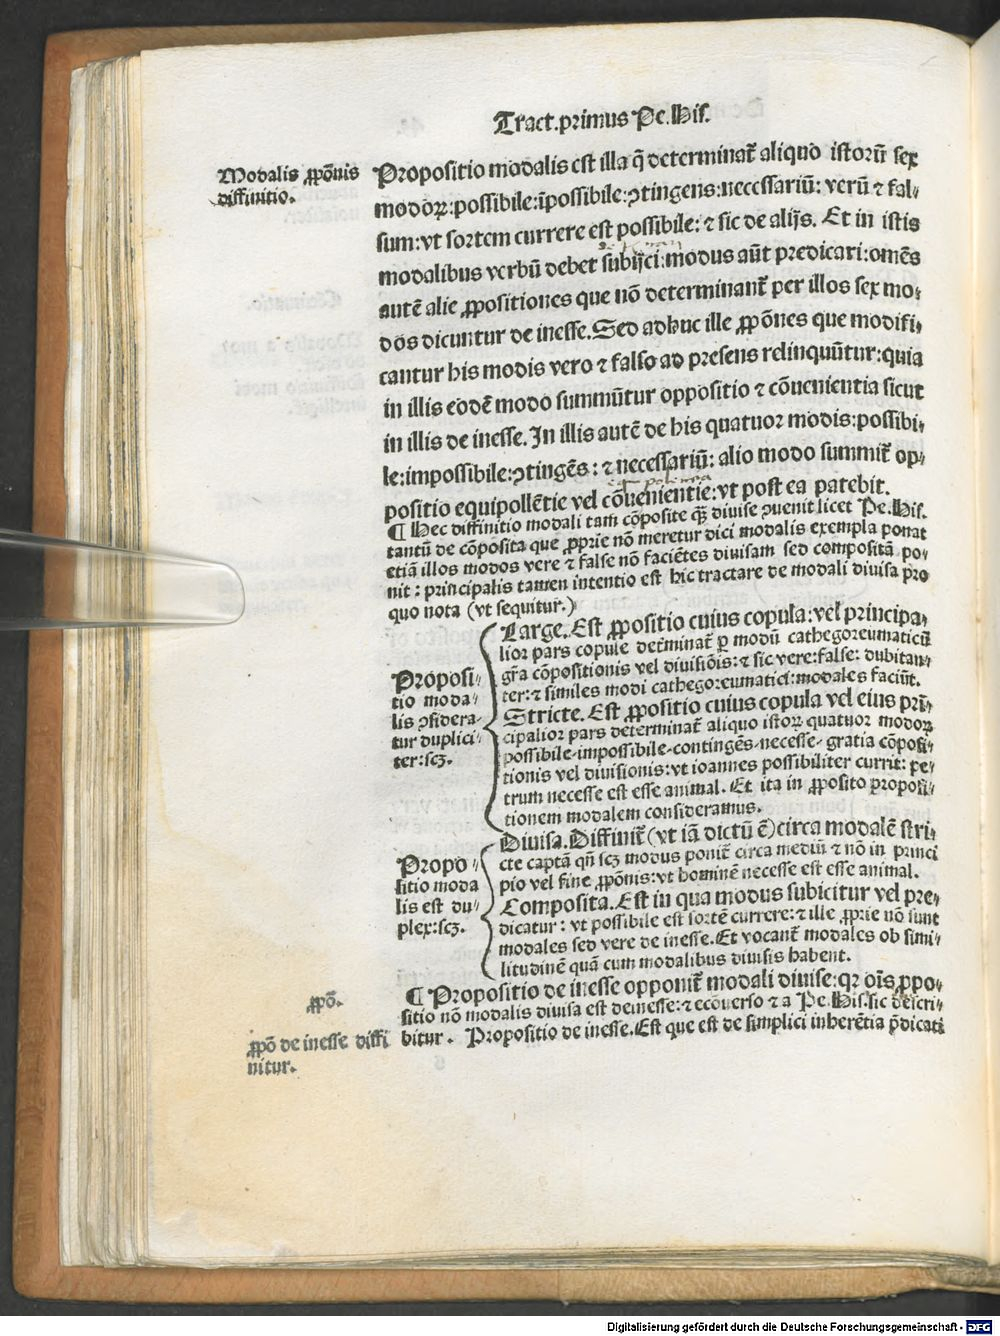 Tract.primus Pe.His.
Modalis ꝓpõnis
diffinitio.
Propositio modalis est illa q̃ determinat᷑ aliquo istorũ sex
modoꝝ:possibile:ĩpossibile:ꝯtingens:necessariũ: verũ ⁊ fal⸗
sum:vt sortem currere est possibile: ⁊ sic de alijs. Et in istis
modalibus verbũ debet subijci:modus aũt predicari:omẽs
autẽ alie ꝓpositiones que nõ determinant᷑ per illos sex mo⸗
dos dicuntur de inesse.Sed adhuc ille ꝓpõnes que modifi⸗
cantur his modis vero ⁊ falso ad presens relinquũtur:quia
in illis eodẽ modo summũtur oppositio ⁊ cõuenientia sicut
in illis de inesse.In illis autẽ de his quatuor modis:possibi⸗
le:impossibile:ꝯtingẽs: ⁊ necessariũ: alio modo summit᷑ op⸗
positio equipollẽtie vel cõuenientie:vt post ea patebit.
¶ Hec diffinitio modali tam cõposite qꝫ̃ diuise ꝯuenit licet Pe.His.
tantũ de cõposita que ꝓprie nõ meretur dici modalis exempla ponat
etiã illos modos vere ⁊ false nõ faciẽtes diuisam sed compositã po⸗
nit : principalis tamen intentio est hic tractare de modali diuisa pro
quo nota (vt sequitur.)
Proposi⸗
tio moda⸗
lis ꝯsidera⸗
tur duplici⸗
ter:scꝫ.
Large.Est ꝓpositio cuius copula:vel principa⸗
lior pars copule det̃minat᷑ ꝑ modũ cathegoreumaticũ
gr̃a cõpositionis vel diuisiõis:⁊ sic vere:false: dubitan⸗
ter:⁊ similes modi cathegoreumatici:modales faciũt.
Stricte.Est ꝓpositio cuius copula vel eius prĩ⸗
cipalior pars determinat᷑ aliquo istoꝝ quatuor modoꝝ
possibile-impossibile-contingẽs-necesse- gratia cõposi⸗
tionis vel diuisionis:vt ioannes possibiliter currit: pe⸗
trum necesse est esse animal. Et ita in ꝓposito proposi⸗
tionem modalem consideramus.
Propo⸗
sitio moda
lis est du⸗
plex:scꝫ.
Diuisa.Diffinit᷑ (vt iã dictũ ẽ) circa modalẽ stri⸗
cte captã qñ scꝫ modus ponit᷑ circa mediũ ⁊ nõ in princi
pio vel fine ꝓpõnis:vt hominẽ necesse est esse animal.
Composita.Est in qua modus subicitur vel pre⸗
dicatur: vt possibile est sortẽ currere:⁊ ille ꝓprie nõ sunt
modales sed vere de inesse.Et vocant᷑ modales ob simi⸗
litudinẽ quã cum modalibus diuisis habent.
ꝓpõ.
¶ Propositio de inesse opponit᷑ modali diuise:qꝛ oĩs ꝓpo⸗
sitio nõ modalis diuisa est deinesse:⁊ ecõuerso ⁊ a Pe.His.sic descri⸗
bitur. Propositio de inesse.Est que est de simplici inherẽtia p̃dicati
ꝓpõ de inesse diffi
nitur.
Digitalisierung gefördert durch die Deutsche Forschungsgemeinschaft - DFG